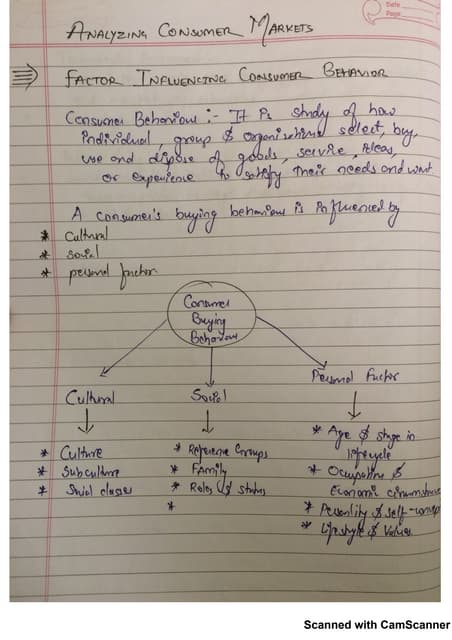 Date
Page
ANALYZING CONSUMER MARKETS
FACTOR INFLUENCING CONSUMER BEHAVIOR
Consumer Behaviour :- It is study of how
individual, group & organizations select, buy,
use and dispose of goods, service, ideas,
or experience to satisfy their needs and want
A consumer's buying behaviour is influenced by
* Cultural
* Social
* personal factor
Consumer
Buying
Behaviour
Cultural
Social
Personal Factor
* Culture
* Subculture
* Social classes
* Reference Groups
* Family
* Roles & status
*
* Age & stage in
lifecycle
* Occupation &
Economic circumstance
* Personality & self-concept
* Lifestyle & Values
Scanned with CamScanner